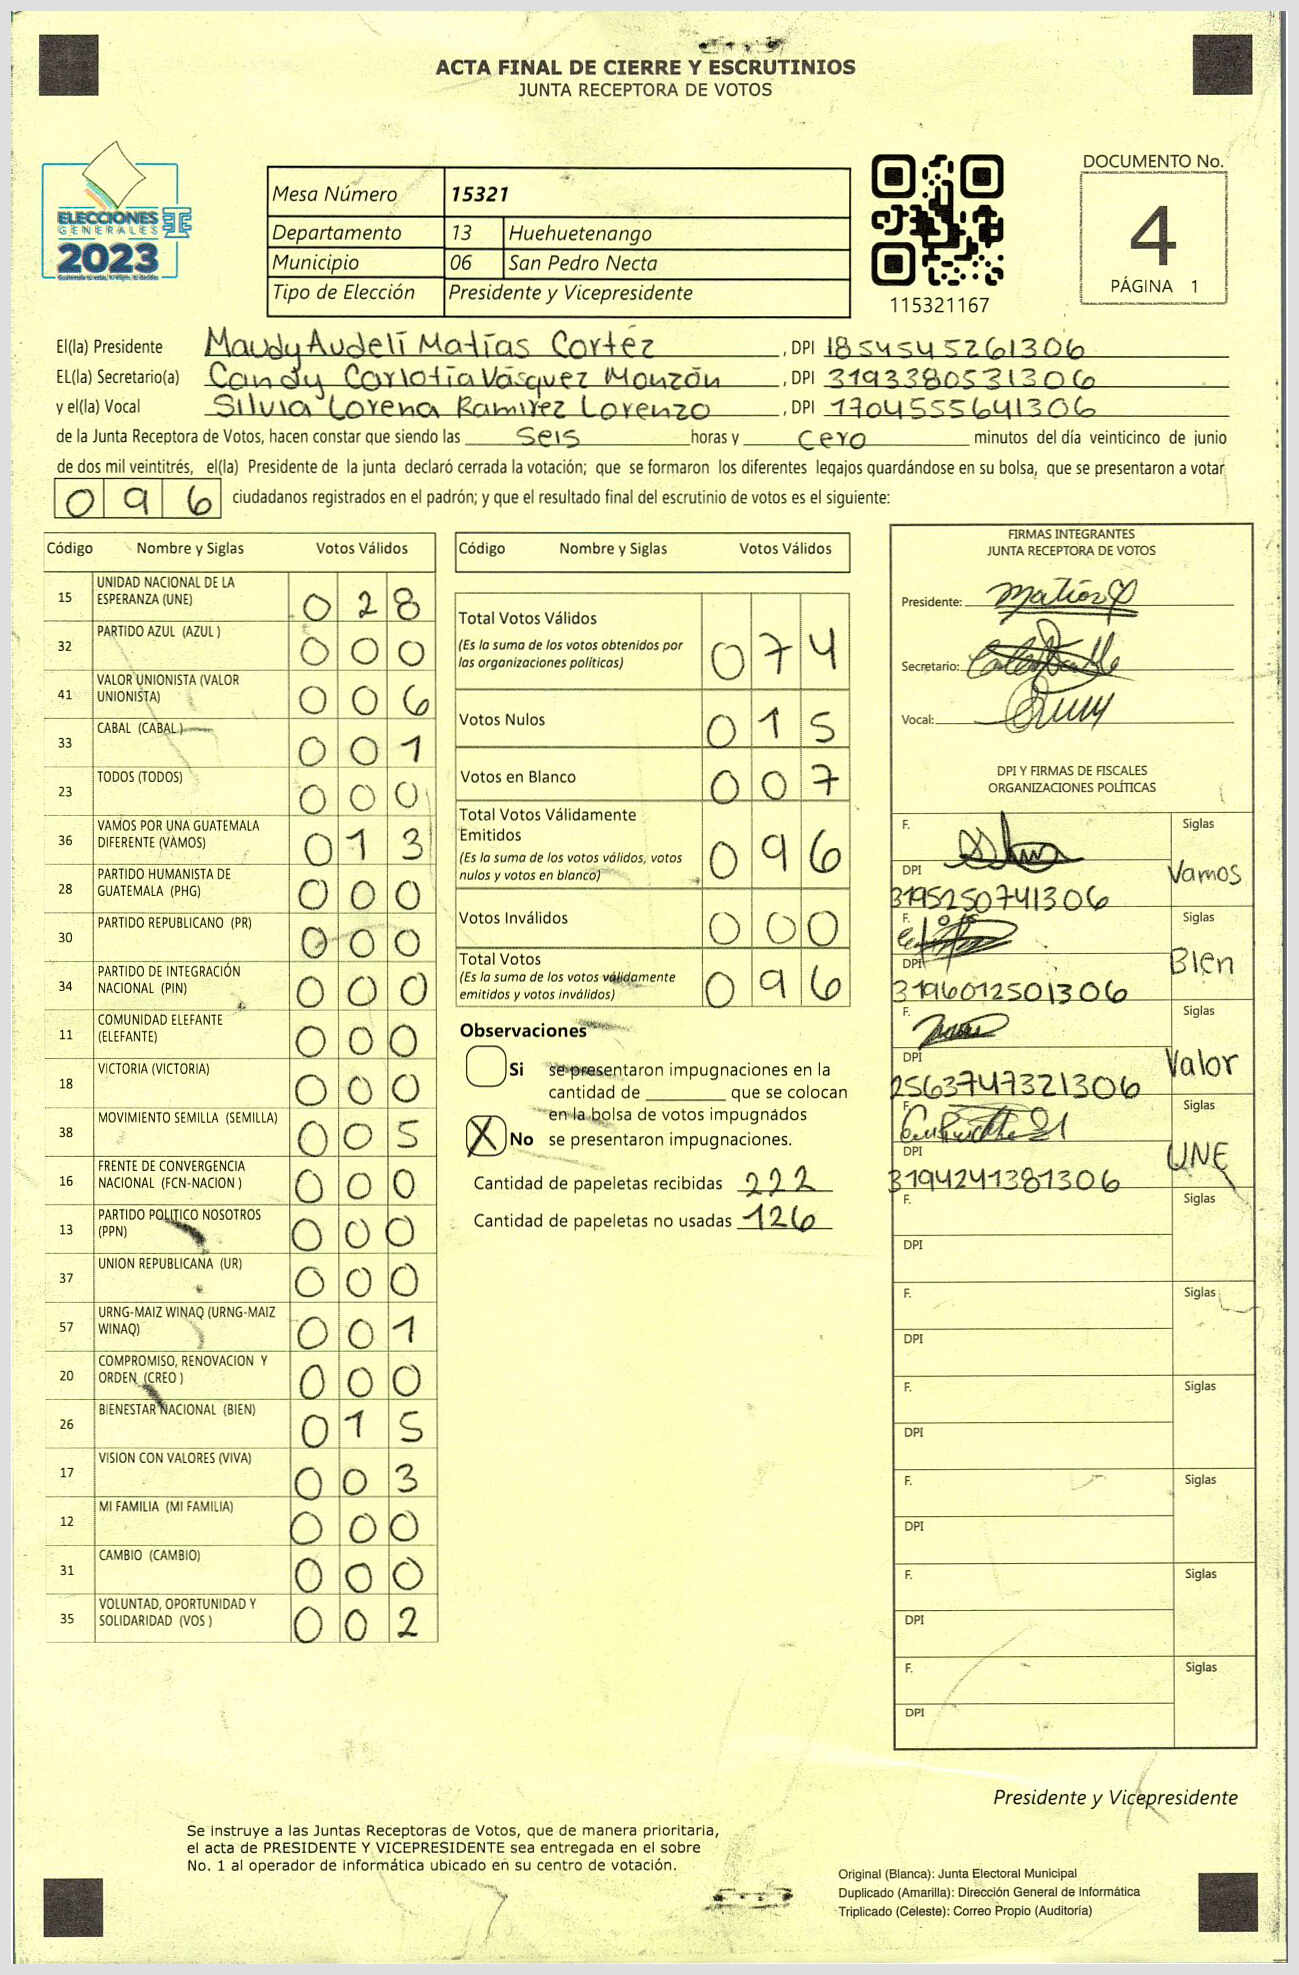 ACTA FINAL DE CIERRE Y ESCRUTINIOS
JUNTA RECEPTORA DE VOTOS
ELECCIONES
GENERALES
2023
Mesa Número 15321
Departamento 13 Huehuetenango
Municipio 06 San Pedro Necta
Tipo de Elección Presidente y Vicepresidente
115321167
DOCUMENTO No.
4
PÁGINA 1
El(la) Presidente Maudy Audelí Matías Cortéz , DPI 1854545261306
EL(la) Secretario(a) Candy Carlotia Vásquez Monzón , DPI 3193380531306
y el(la) Vocal Silvia Lorena Ramirez Lorenzo , DPI 1704555641306
de la Junta Receptora de Votos, hacen constar que siendo las seis horas y cero minutos del día veinticinco de junio
de dos mil veintitrés, el(la) Presidente de la junta declaró cerrada la votación; que se formaron los diferentes legajos guardándose en su bolsa, que se presentaron a votar
096 ciudadanos registrados en el padrón; y que el resultado final del escrutinio de votos es el siguiente:
Código Nombre y Siglas Votos Válidos
15 UNIDAD NACIONAL DE LA ESPERANZA (UNE) 028
32 PARTIDO AZUL (AZUL ) 000
41 VALOR UNIONISTA (VALOR UNIONISTA) 006
33 CABAL (CABAL ) 001
23 TODOS (TODOS) 000
36 VAMOS POR UNA GUATEMALA DIFERENTE (VAMOS) 013
28 PARTIDO HUMANISTA DE GUATEMALA (PHG) 000
30 PARTIDO REPUBLICANO (PR) 000
34 PARTIDO DE INTEGRACIÓN NACIONAL (PIN) 000
11 COMUNIDAD ELEFANTE (ELEFANTE) 000
18 VICTORIA (VICTORIA) 000
38 MOVIMIENTO SEMILLA (SEMILLA) 005
16 FRENTE DE CONVERGENCIA NACIONAL (FCN-NACION ) 000
13 PARTIDO POLITICO NOSOTROS (PPN) 000
37 UNION REPUBLICANA (UR) 000
57 URNG-MAIZ WINAQ (URNG-MAIZ WINAQ) 001
20 COMPROMISO, RENOVACION Y ORDEN (CREO ) 000
26 BIENESTAR NACIONAL (BIEN) 015
17 VISION CON VALORES (VIVA) 003
12 MI FAMILIA (MI FAMILIA) 000
31 CAMBIO (CAMBIO) 000
35 VOLUNTAD, OPORTUNIDAD Y SOLIDARIDAD (VOS ) 002
Código Nombre y Siglas Votos Válidos
Total Votos Válidos 074
(Es la suma de los votos obtenidos por
las organizaciones políticas)
Votos Nulos 015
Votos en Blanco 007
Total Votos Válidamente
Emitidos 096
(Es la suma de los votos válidos, votos
nulos y votos en blanco)
Votos Inválidos 000
Total Votos 096
(Es la suma de los votos válidamente
emitidos y votos inválidos)
Observaciones
Si se presentaron impugnaciones en la
cantidad de ________ que se colocan
en la bolsa de votos impugnados
X No se presentaron impugnaciones.
Cantidad de papeletas recibidas 222
Cantidad de papeletas no usadas 126
FIRMAS INTEGRANTES
JUNTA RECEPTORA DE VOTOS
Presidente:
Secretario:
Vocal:
DPI Y FIRMAS DE FISCALES
ORGANIZACIONES POLÍTICAS
F. Siglas
DPI Vamos
3195250741306
F. Siglas
DPI Bien
3196012501306
F. Siglas
DPI Valor
2563747321306
F. Siglas
DPI UNE
3194241381306
F. Siglas
DPI
F. Siglas
DPI
F. Siglas
DPI
F. Siglas
DPI
F. Siglas
DPI
F. Siglas
DPI
Presidente y Vicepresidente
Se instruye a las Juntas Receptoras de Votos, que de manera prioritaria,
el acta de PRESIDENTE Y VICEPRESIDENTE sea entregada en el sobre
No. 1 al operador de informática ubicado en su centro de votación.
Original (Blanca): Junta Electoral Municipal
Duplicado (Amarilla): Dirección General de Informática
Triplicado (Celeste): Correo Propio (Auditoría)